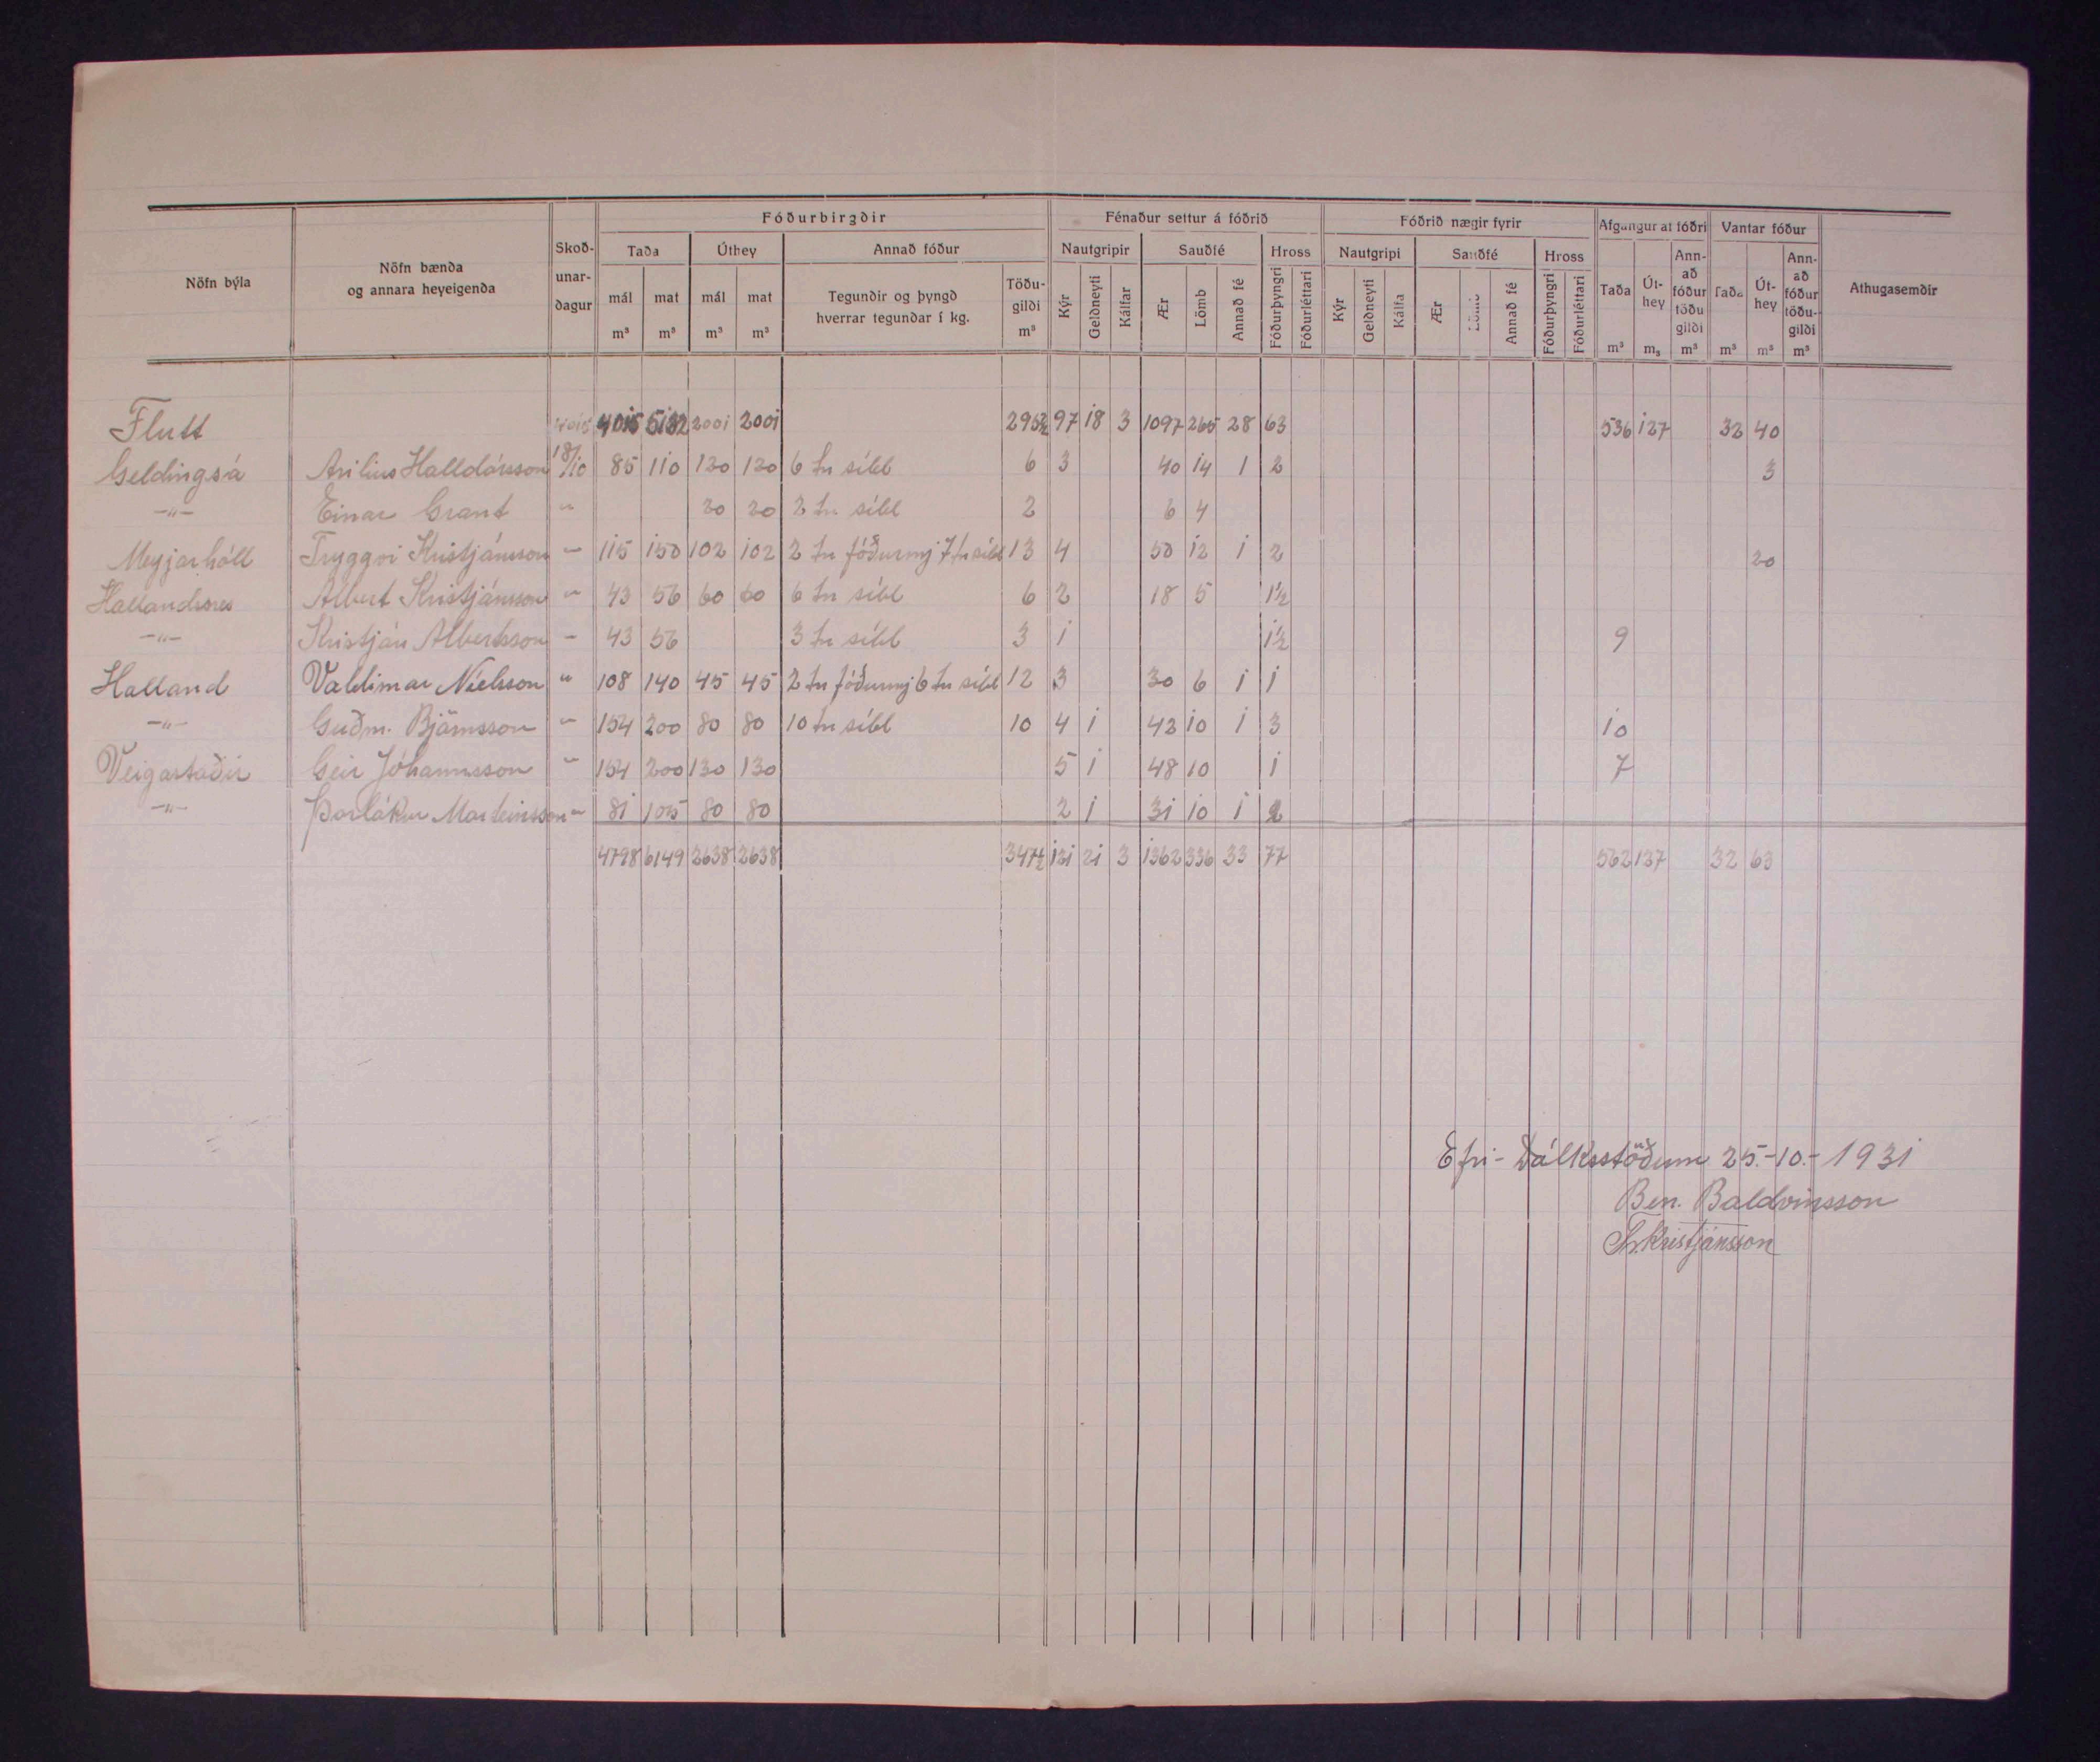 Fóðurbirgðir Fénaður settur á fóðrið Fóðrið nægir fyrir Afgangur af fóðri Vantar fóður
Nöfn býla Nöfn bænda og annara heyeigenda Skoðunardagur Taða Úthey Annað fóður Nautgripir Sauðfé Hross Nautgripi Sauðfé Hross Taða Úthey Annað fóður töðugildi Taða Úthey Annað fóður töðugildi Athugasemdir
mál mat mál mat Tegundir og þyngd hverrar tegundar í kg. Töðugildi Kýr Geldneyti Kálfar Ær Lömb Annað fé Fóðurþyngri Fóðurléttari Kýr Geldneyti Kálfa Ær Lömb Annað fé Fóðurþyngri Fóðurléttari
m³ m³ m³ m³ m³ m³ m³ m³ m³ m³ m³
Flutt 4015 4015 5132 2001 2001 295½ 97 18 3 1097 265 28 63 536 127 32 40
Geldingsá Arilíus Halldórsson 18/10 85 110 120 120 6 tn síld 6 3 40 14 1 2 3
-"- Einar Grant " 20 20 2 tn síld 2 6 4
Meyjarhóll Tryggvi Kristjánsson - 115 150 102 102 2 tn fóðurmj 7 tn síld 13 4 50 12 1 2 20
Hallandsnes Albert Kristjánsson " 43 56 60 60 6 tn síld 6 2 18 5 1½
-"- Kristján Albertsson - 43 56 3 tn síld 3 1 1½ 9
Halland Valdimar Níelsson " 108 140 45 45 2 tn fóðurmj 6 tn síld 12 3 30 6 1 1
-"- Guðm. Björnsson " 154 200 80 80 10 tn síld 10 4 1 42 10 1 3 10
Veigastaðir Geir Jóhannsson " 154 200 130 130 5 1 48 10 1 7
-"- Þorlákur Marteinsson " 81 105 80 80 2 1 31 10 1 2
4798 6149 2638 2638 347½ 121 21 3 1362 336 33 77 562 127 32 63
Efri-Dálksstöðum 25.-10.-1931
Ben. Baldvinsson
Kristjánsson